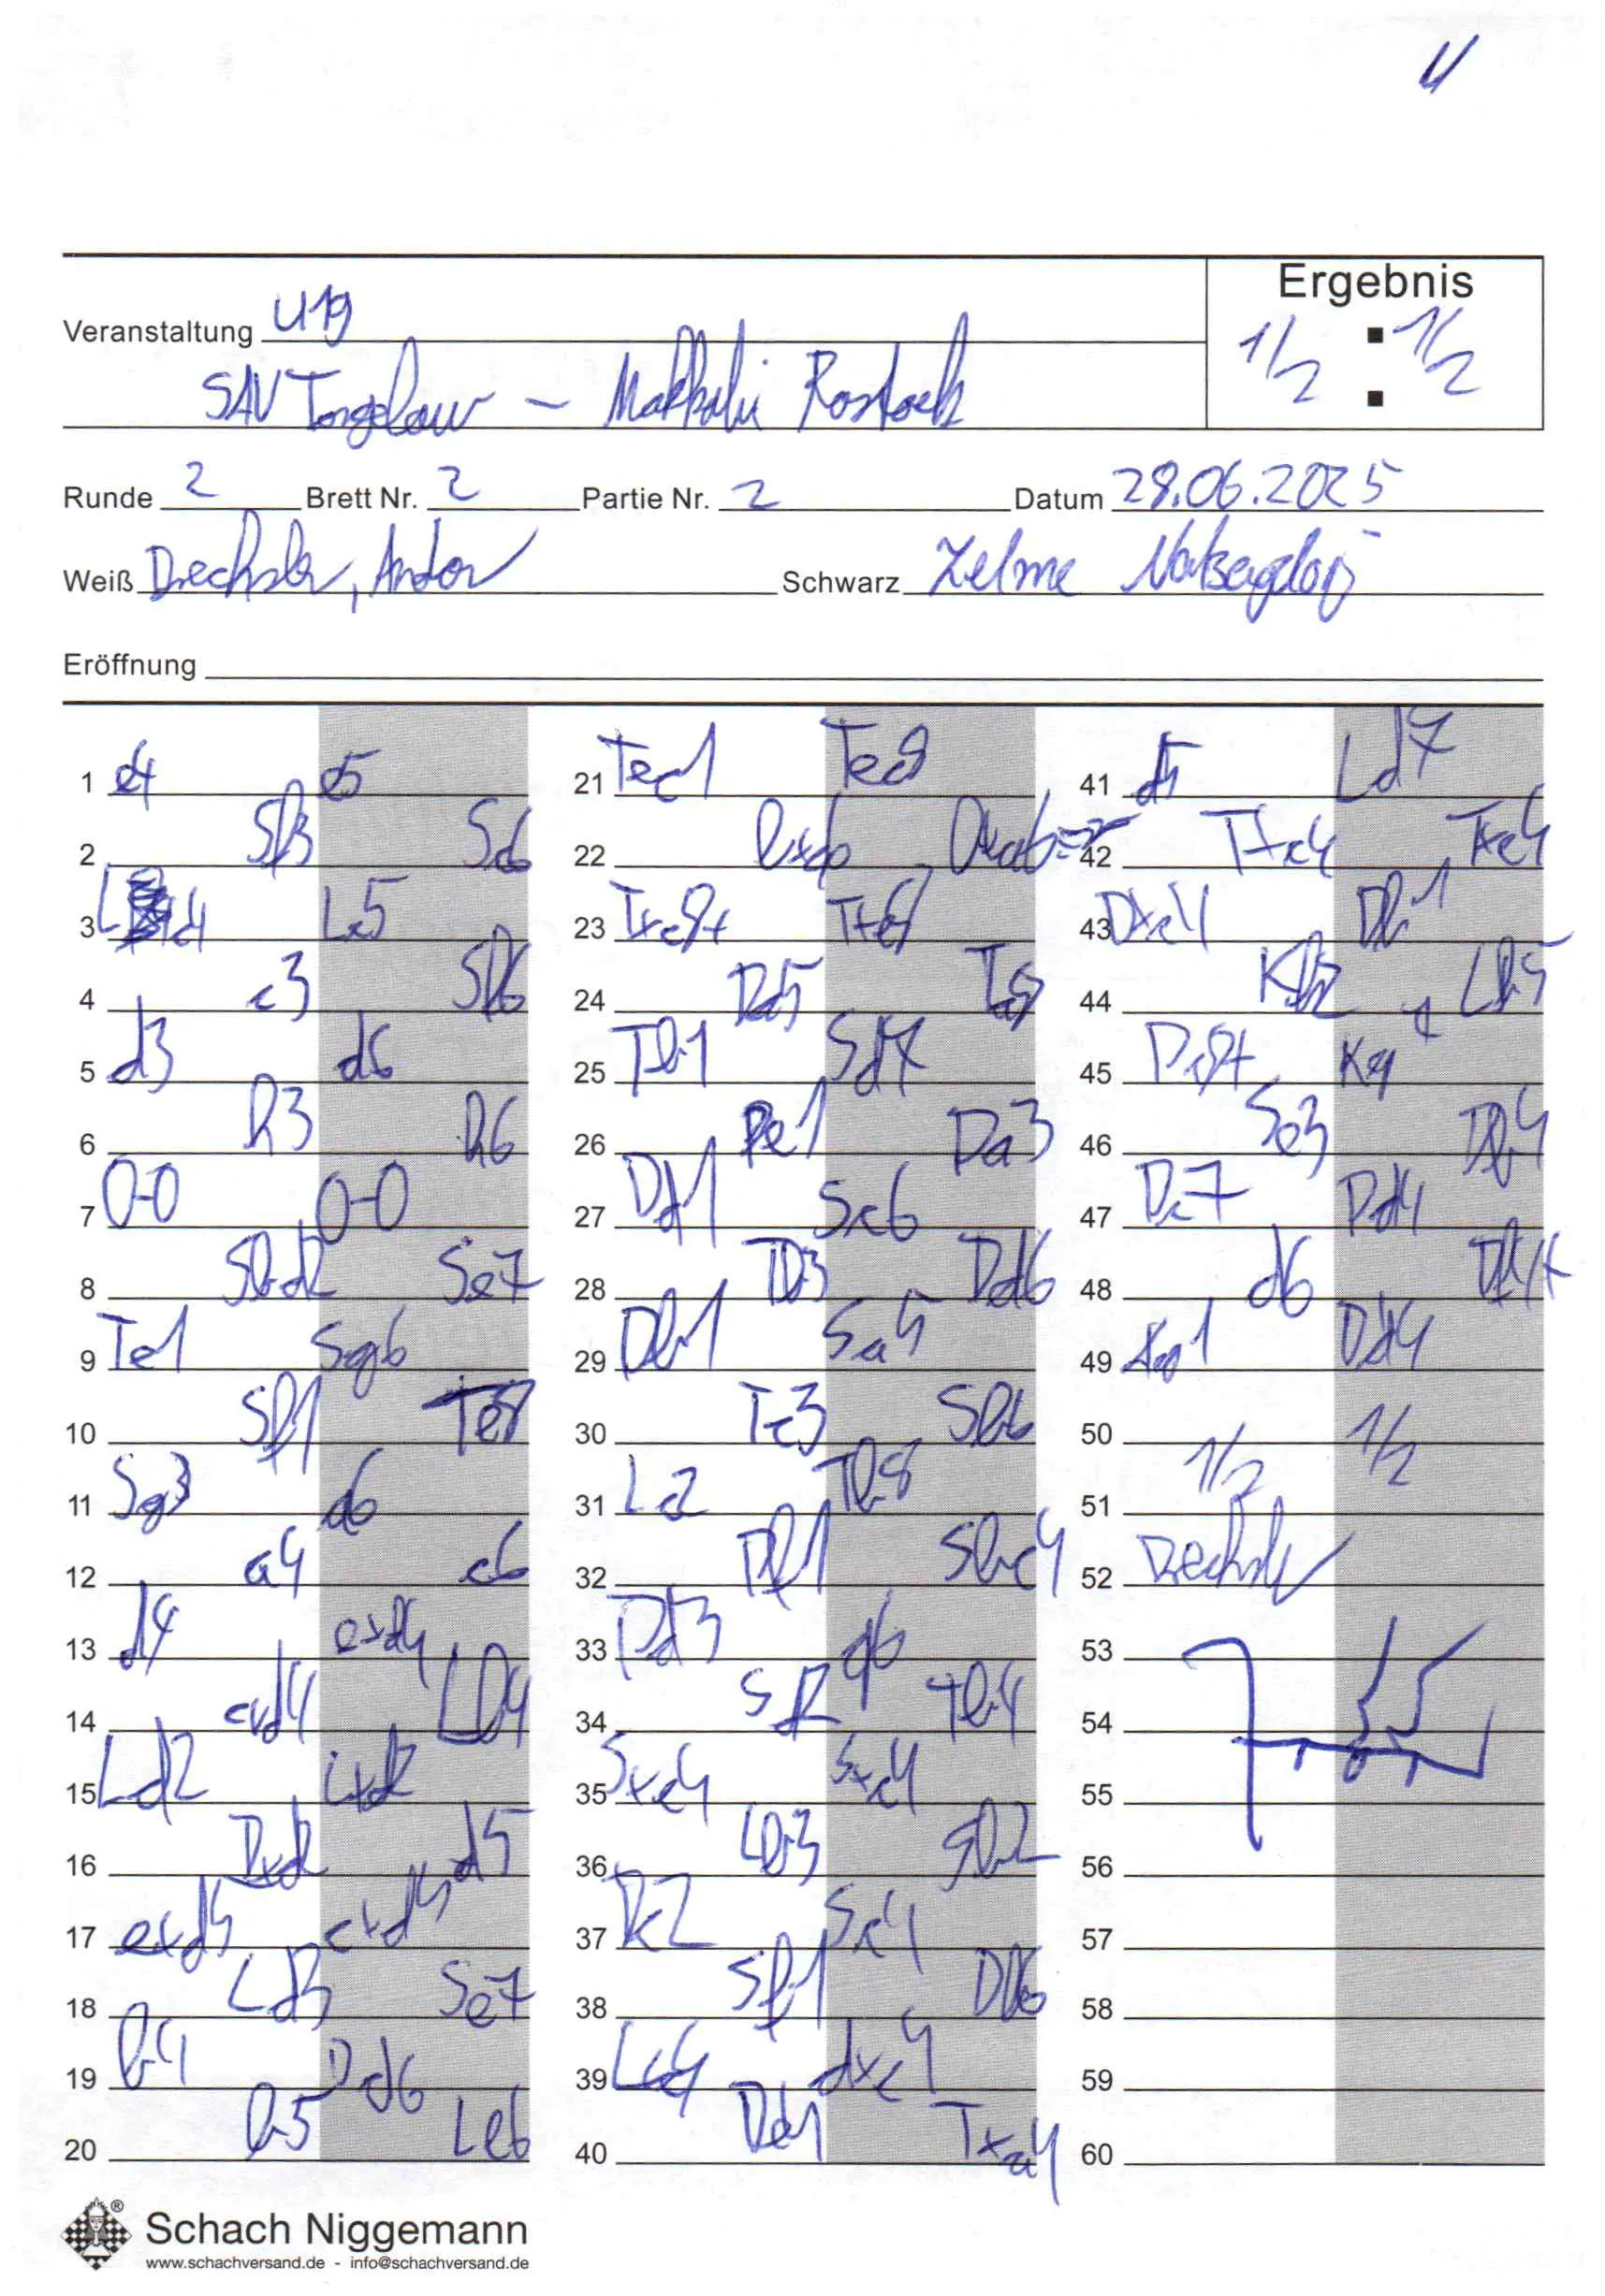 4
Ergebnis
Veranstaltung U19
1/2 : 1/2
SAV Torgelow - Makkabi Rostock
Runde 2 Brett Nr. 2 Partie Nr. 2 Datum 29.06.2025
Weiß Drechsler, Andor Schwarz Zelme
Eröffnung
1 e4 e5
2 Sf3 Sc6
3 Lc4 Lc5
4 c3 Sf6
5 d3 d6
6 h3 h6
7 0-0 0-0
8 Sbd2 Se7
9 Te1 Sg6
10 Sf1 Te8
11 Sg3 a6
12 a4 c6
13 d4 exd4
14 cxd4 Lb4
15 Ld2 Lxd2
16 Dxd2 d5
17 exd5 cxd5
18 Ld3 Se7
19 b4 Dd6
20 b5 Le6
21 Tec1 Tec8
22 bxa6 Dxa6
23 Txc8+ Txc8
24 Da5 Ta8
25 Tb1 Sd7
26 De1 Da3
27 Dd1 Sc6
28 Tb3 Dd6
29 Db1 Sa5
30 Tc3 Sb6
31 Lc2 Tb8
32 Db1 Sbc4
33 Dd3 g6
34 Se2 Tb4
35 Sxc4 Sxc4
36 Lb3 Sb2
37 Dc2 Sc4
38 Sf1 Db6
39 Lxc4 dxc4
40 Dd1 Txa4
41 d5 Ld7
42 Txc4 Txc4
43 Dxc4 Db1
44 Kh2 Lb5
45 Dc8+ Kg7
46 Se3 Db4
47 Dc7 Dd4
48 d6 Df4+
49 Kg1 Dd4
50 1/2
51 1/2
52 Drechsler
53
54
55
56
57
58
59
60
® Schach Niggemann
www.schachversand.de - info@schachversand.de